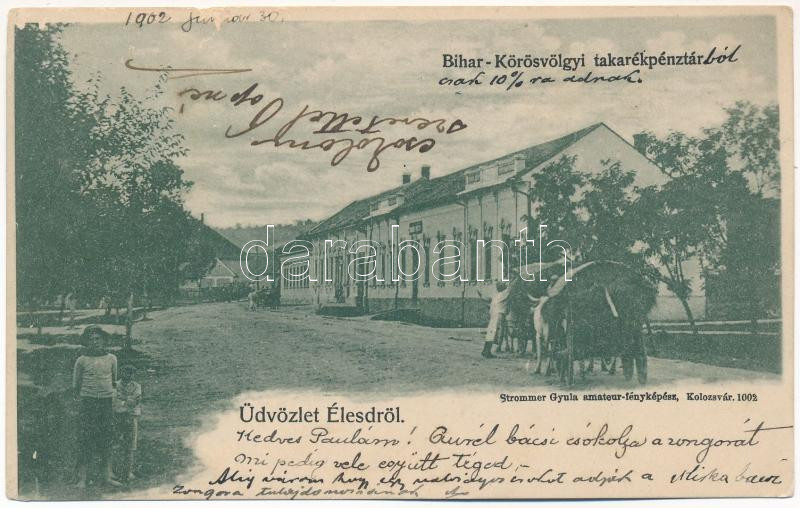 1902 Január 30.
Bihar-Körösvölgyi takarékpénztárból
csak 10% ra adnak.
csókolom
szeretettel
darabanth
Strommer Gyula amateur-fényképész, Kolozsvár. 1002
Üdvözlet Élesdről.
Kedves Paulám! Aurél bácsi csókolja a zongorát
mi pedig vele együtt téged,
Alig várom hogy egy csókot adjak a Miska bácsi
zongora